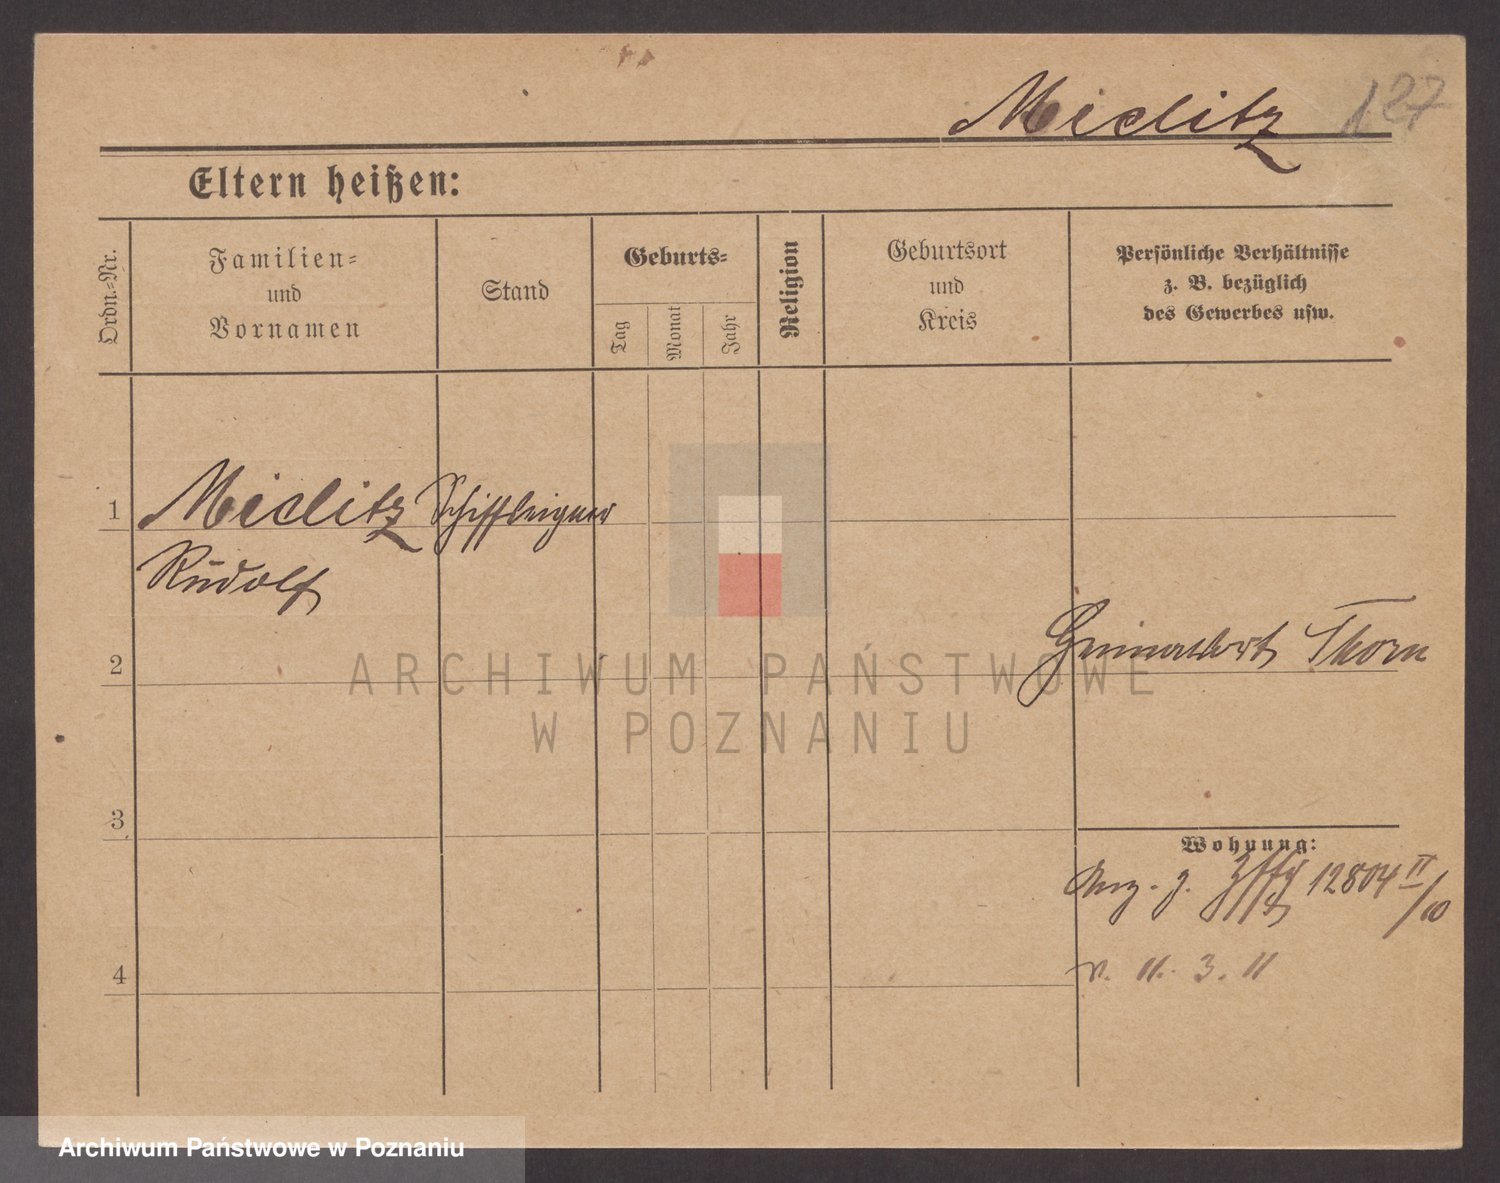 Miclitz 127
Eltern heißen:
Ordn.=Nr.
Familien=
und
Vornamen
Stand
Geburts=
Tag
Monat
Jahr
Religion
Geburtsort
und
Kreis
Persönliche Verhältnisse
z. B. bezüglich
des Gewerbes usw.
1
Miclitz Schiffseigner
Rudolf
2
Heimatsort Thorn
ARCHIWUM PAŃSTWOWE
W POZNANIU
3
Wohnung:
12804 II/10
4
v. 11. 3. 11
Archiwum Państwowe w Poznaniu